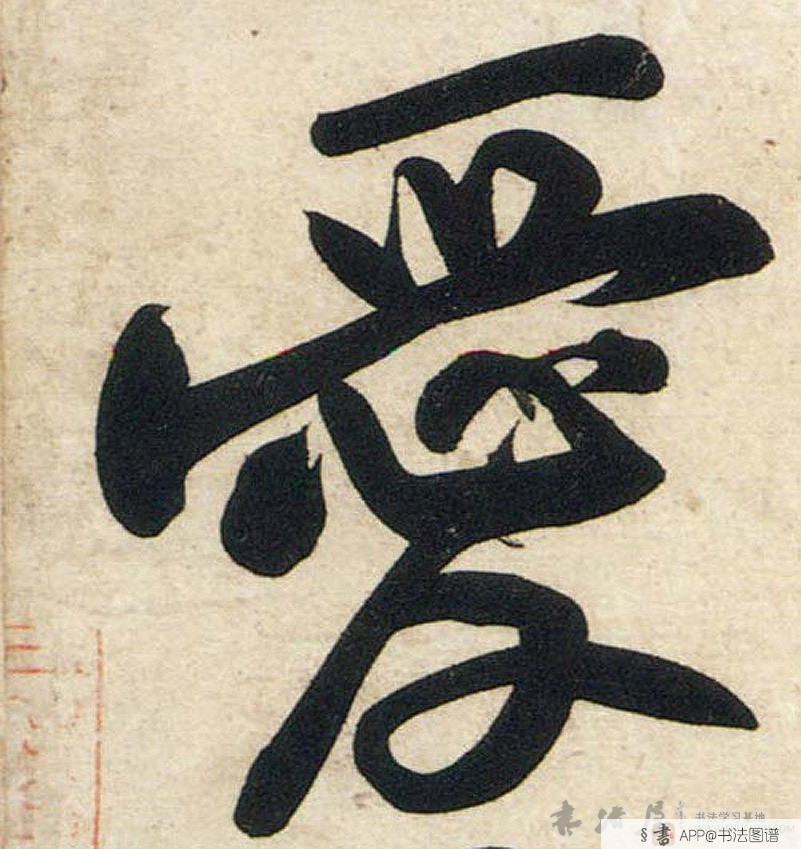 愛
书法学习基地
§書 APP@书法图谱